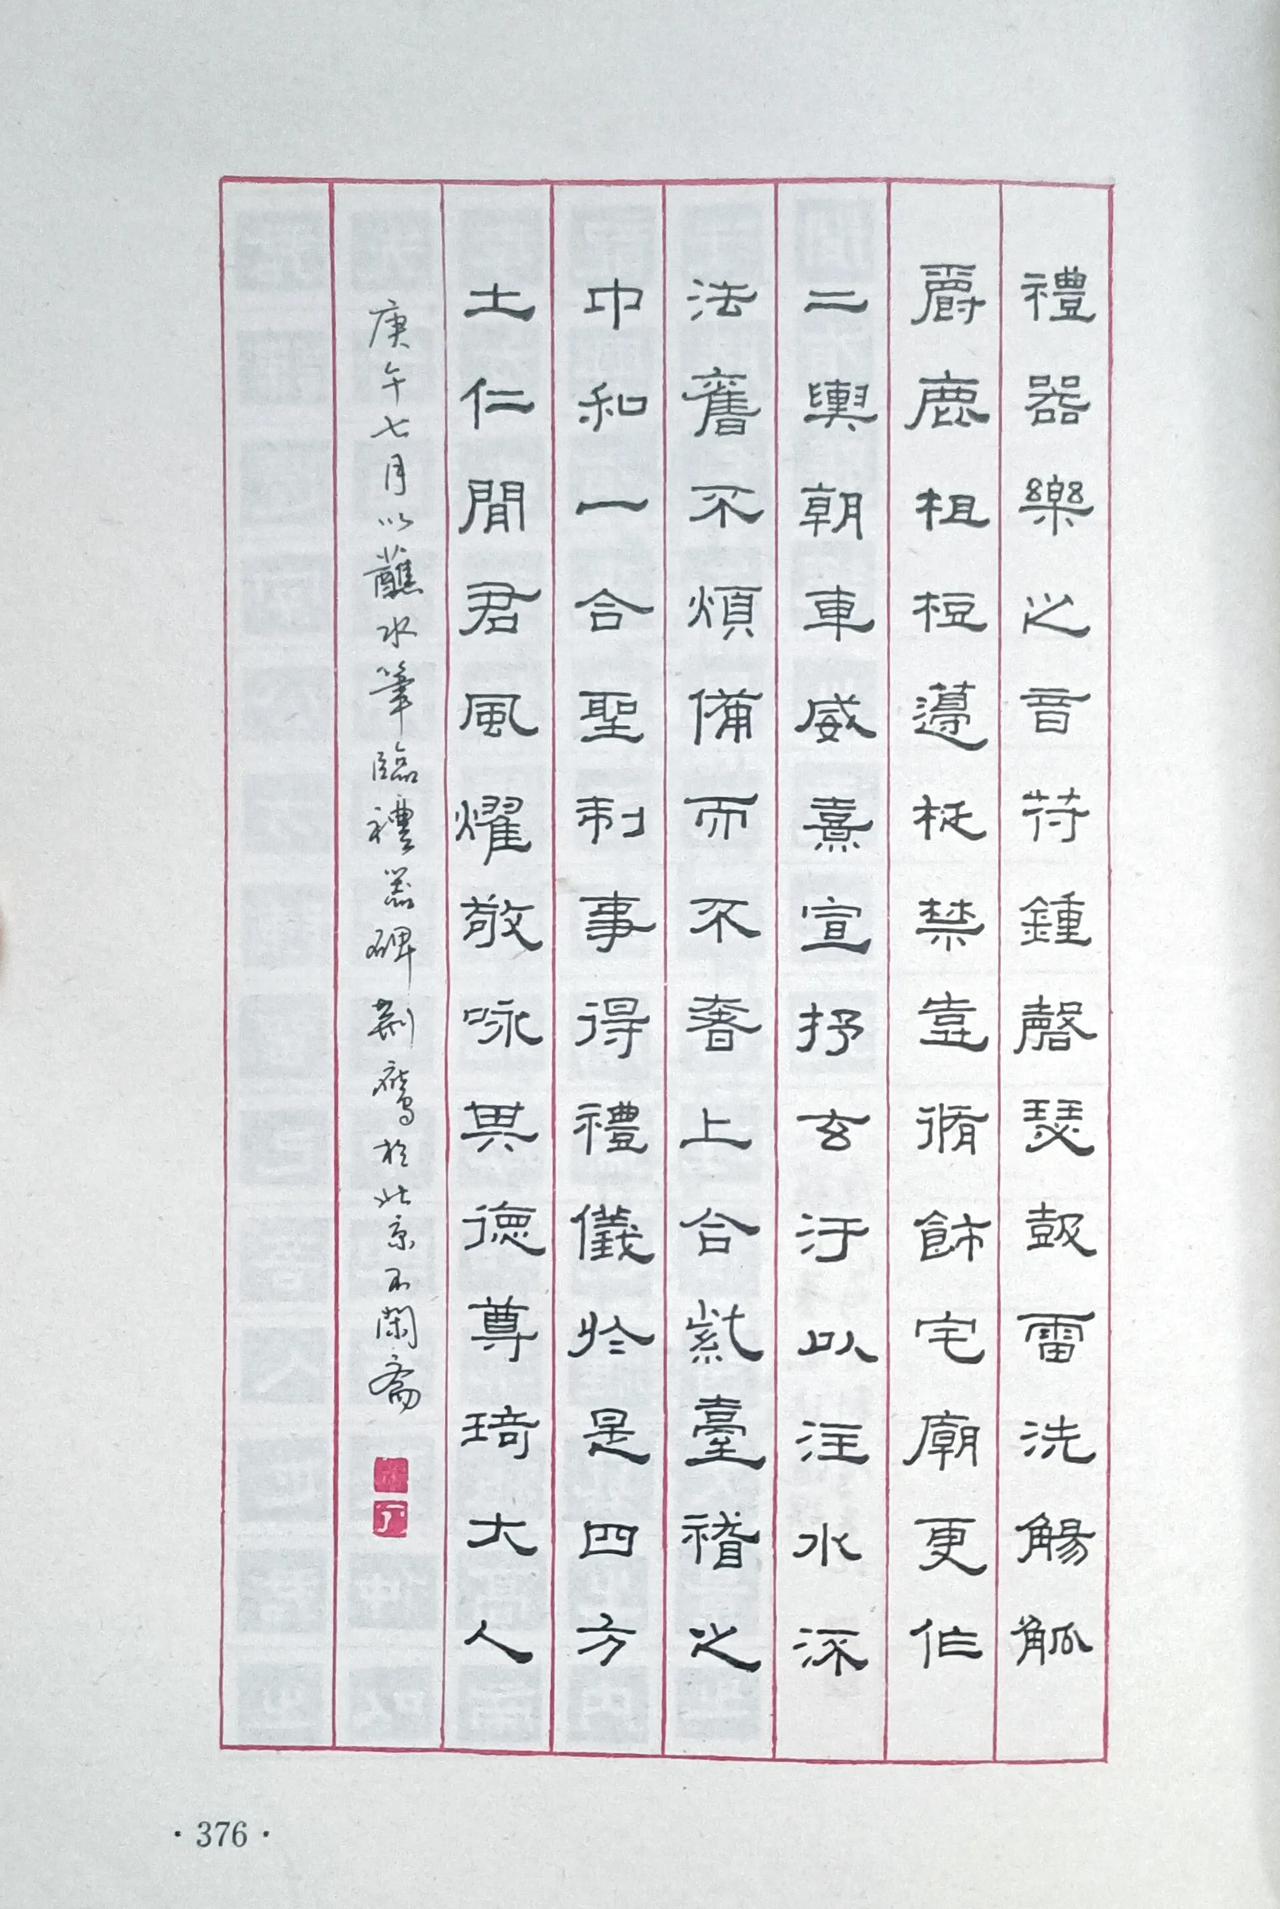 禮器樂之音苻鍾磬瑟鼓雷洗觴觚
爵鹿柤梪籩柉禁壼脩飾宅廟更作
二輿朝車威熹宣抒玄汙以注水流
法舊不煩備而不奢上合紫臺稽之
中和下合聖制事得禮儀於是四方
土仁聞君風燿敬咏其德尊琦大人
庚午七月以蘸水筆臨禮器碑荊鷹於北京不閑齋
·376·